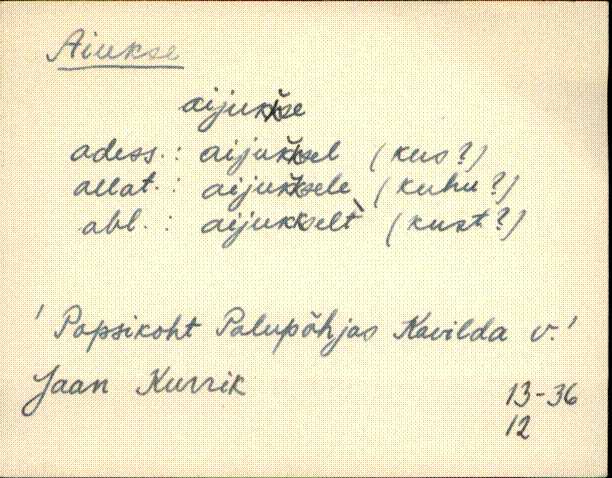 Aiukse
aijukse
adess. : aijuksel (kus?)
allat. : aijuksele (kuhu?)
abl. : aijukselt (kust?)
'Popsikoht Palupõhjas Kavilda v.'
Jaan Kurrik
13-36
12